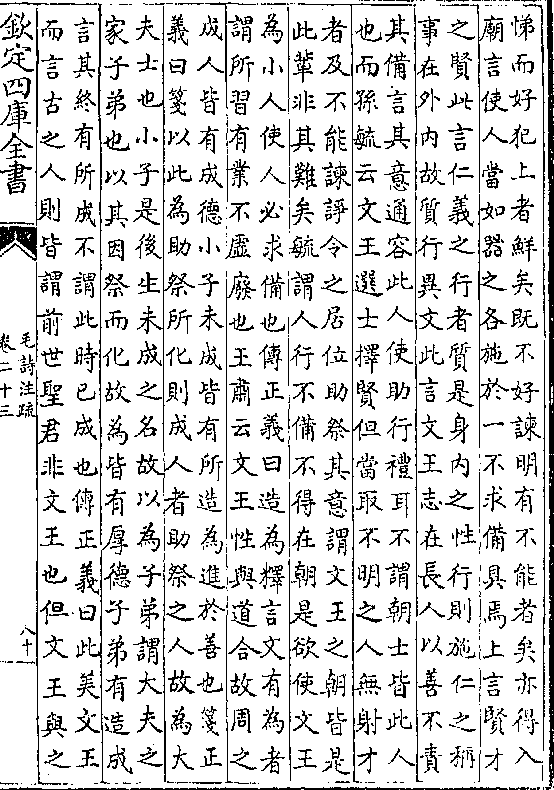 悌而好犯上者鮮矣既不好諫明有不能者矣亦得入
廟言使人當如器之各施於一不求備具焉上言賢才
之賢此言仁義之行者質是身内之性行則施仁之稱
事在外内故質行異文此言文王志在長人以善不責
其備言其意通容此人使助行禮耳不謂朝士皆此人
也而孫毓云文王選士擇賢但當取不明之人無射才
者及不能諫諍令之居位助祭其意謂文王之朝皆是
此輩非其難矣毓謂人行不備不得在朝是欲使文王
為小人使人必求備也傳正義曰造為釋言文有為者
謂所習有業不虛廢也王肅云文王性與道合故周之
成人皆有成德小子未成皆有所造為進於善也箋正
義曰箋以此為助祭所化則成人者助祭之人故為大
夫士也小子是後生未成之名故以為子弟謂大夫之
家子弟也以其因祭而化故為皆有厚德子弟有造成
言其終有所成不謂此時已成也傳正義曰此美文王
而言古之人則皆謂前世聖君非文王也但文王與之
欽定四庫全書
毛詩注疏
卷二十三
八十